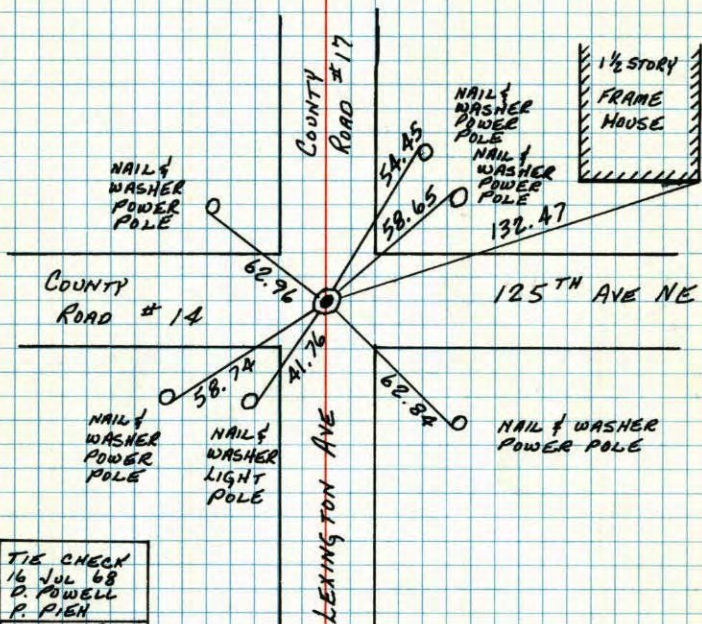 COUNTY
ROAD #17
1½ STORY
FRAME
HOUSE
NAIL &
WASHER
POWER
POLE
54.45
NAIL &
WASHER
POWER
POLE
58.65
132.47
NAIL &
WASHER
POWER
POLE
62.96
COUNTY
ROAD #14
125TH AVE NE
58.74
41.76
62.84
NAIL &
WASHER
POWER
POLE
NAIL &
WASHER
LIGHT
POLE
NAIL & WASHER
POWER POLE
LEXINGTON AVE
TIE CHECK
16 JUL 68
D. POWELL
P. PIEH